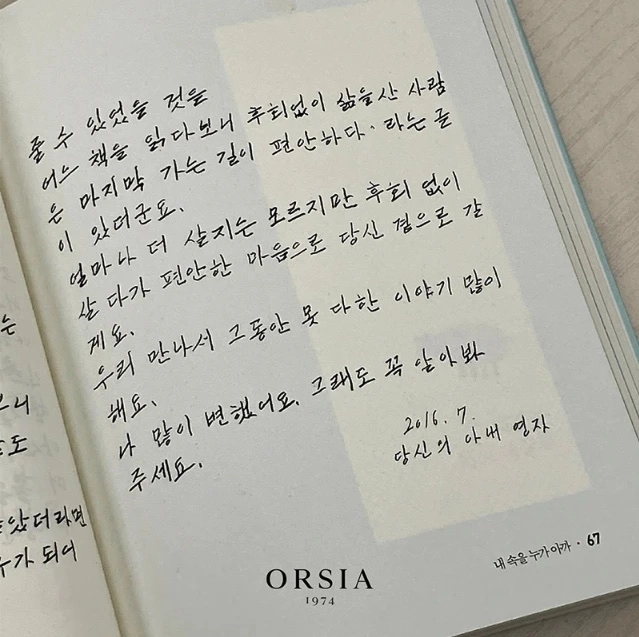 줄 수 있었을 것을
어느 책을 읽다보니 후회없이 삶을 산 사람
은 마지막 가는 길이 편안하다. 라는 글
이 있더군요.
얼마나 더 살지는 모르지만 후회 없이
살다가 편안한 마음으로 당신 곁으로 갈
게요.
우리 만나서 그동안 못 다한 이야기 많이
해요.
나 많이 변했어요. 그래도 꼭 알아봐
주세요.
2016. 7.
당신의 아내 영자
는
보니
도
았더라면
수가 되어
내 속을 누가 아까 · 67
ORSIA
1974